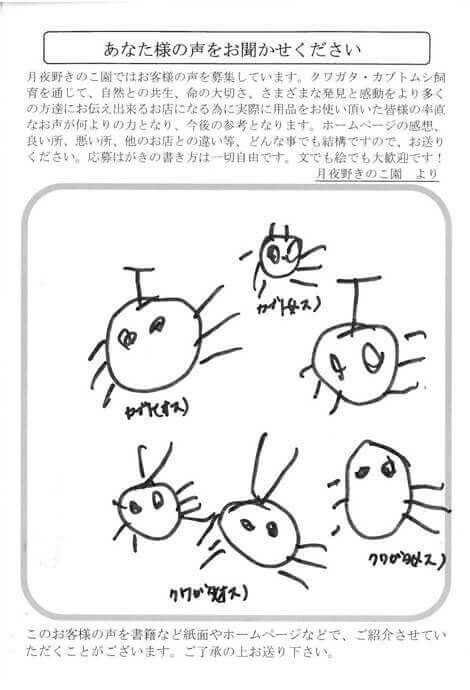 あなた様の声をお聞かせください
月夜野きのこ園ではお客様の声を募集しています。クワガタ・カブトムシ飼
育を通じて、自然との共生、命の大切さ、さまざまな発見と感動をより多く
の方達にお伝え出来るお店になる為に実際に用品をお使い頂いた皆様の率直
なお声が何よりの力となり、今後の参考となります。ホームページの感想、
良い所、悪い所、他のお店との違い等、どんな事でも結構ですので、お送り
ください。応募はがきの書き方は一切自由です。文でも絵でも大歓迎です！
月夜野きのこ園　より
カブト(メス)
カブト(オス)
クワガタ(オス)
クワガタ(メス)
このお客様の声を書籍など紙面やホームページなどで、ご紹介させてい
ただくことがございます。ご了承の上お送り下さい。